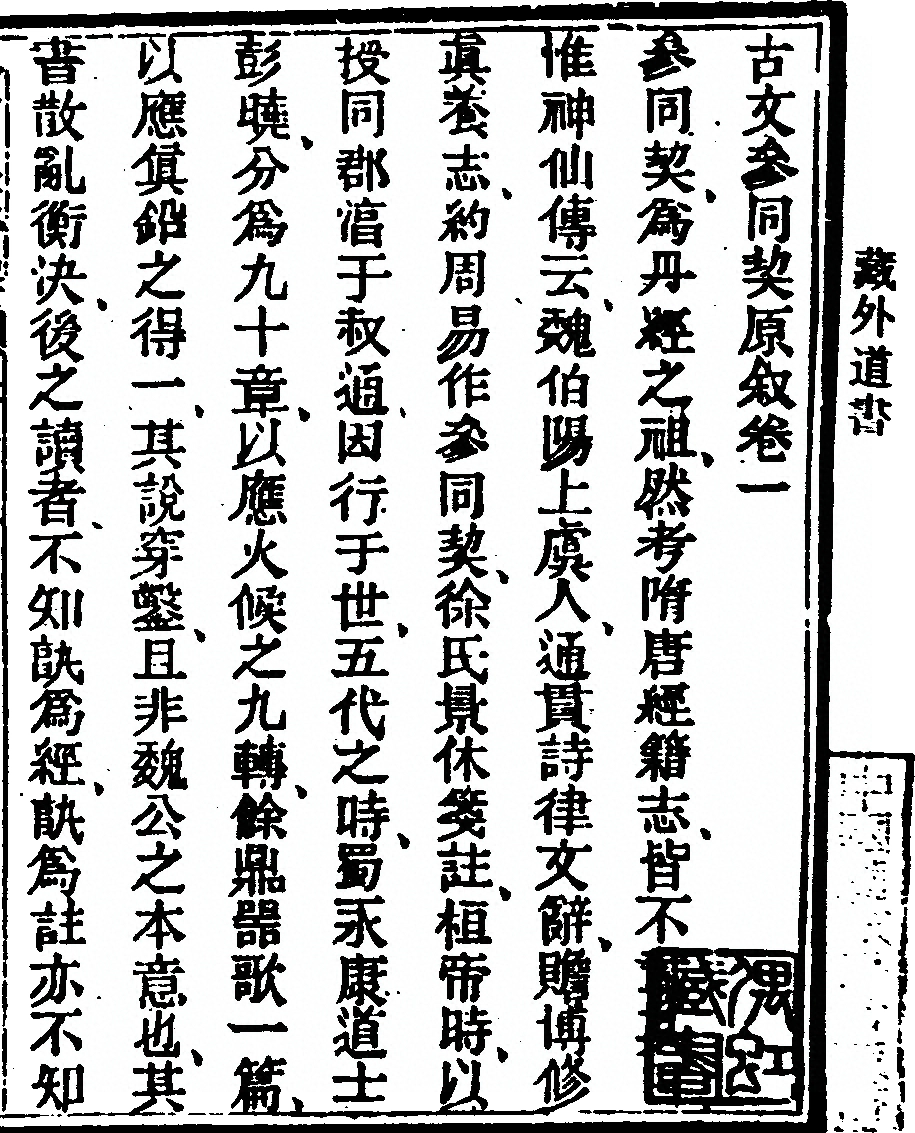 藏外道書
古文參同契原叙卷一
參同契爲丹經之祖然考隋唐經籍志皆不
惟神仙傳云魏伯陽上虞人通貫詩律文辭贍博修
眞養志約周易作參同契徐氏景休箋註桓帝時以
授同郡淳于叔通因行于世五代之時蜀永康道士
彭曉分爲九十章以應火候之九轉餘鼎器歌一篇
以應眞鉛之得一其說穿鑿且非魏公之本意也其
書散亂衡決後之讀者不知孰爲經孰爲註亦不知